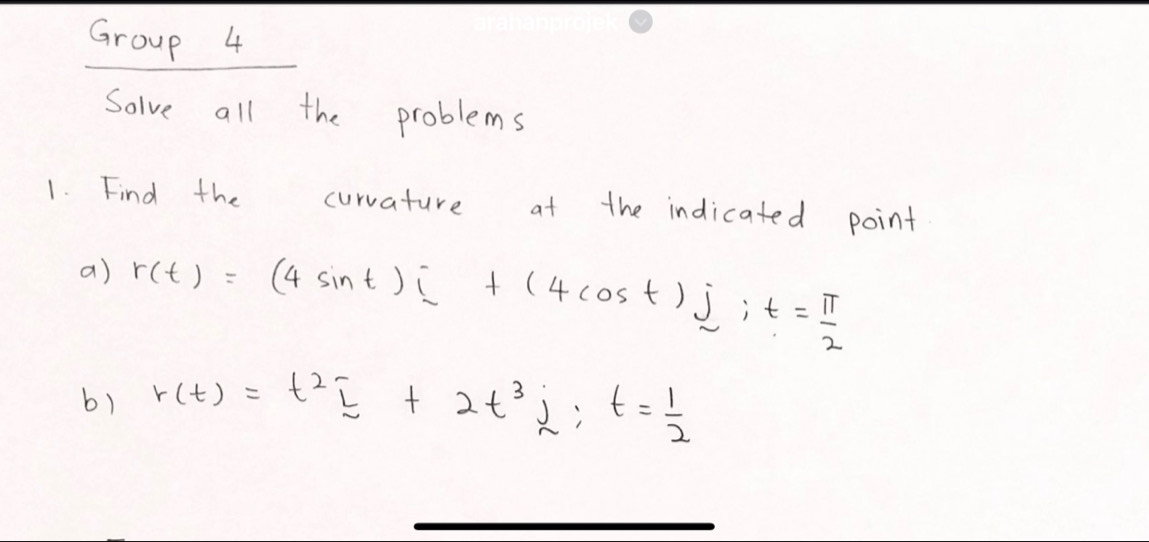 Group 4
Solve all the problems
1. Find the curvature at the indicated point.
a) r(t) = (4 sin t) i + (4 cos t) j ; t = π/2
b) r(t) = t² i + 2t³ j ; t = 1/2